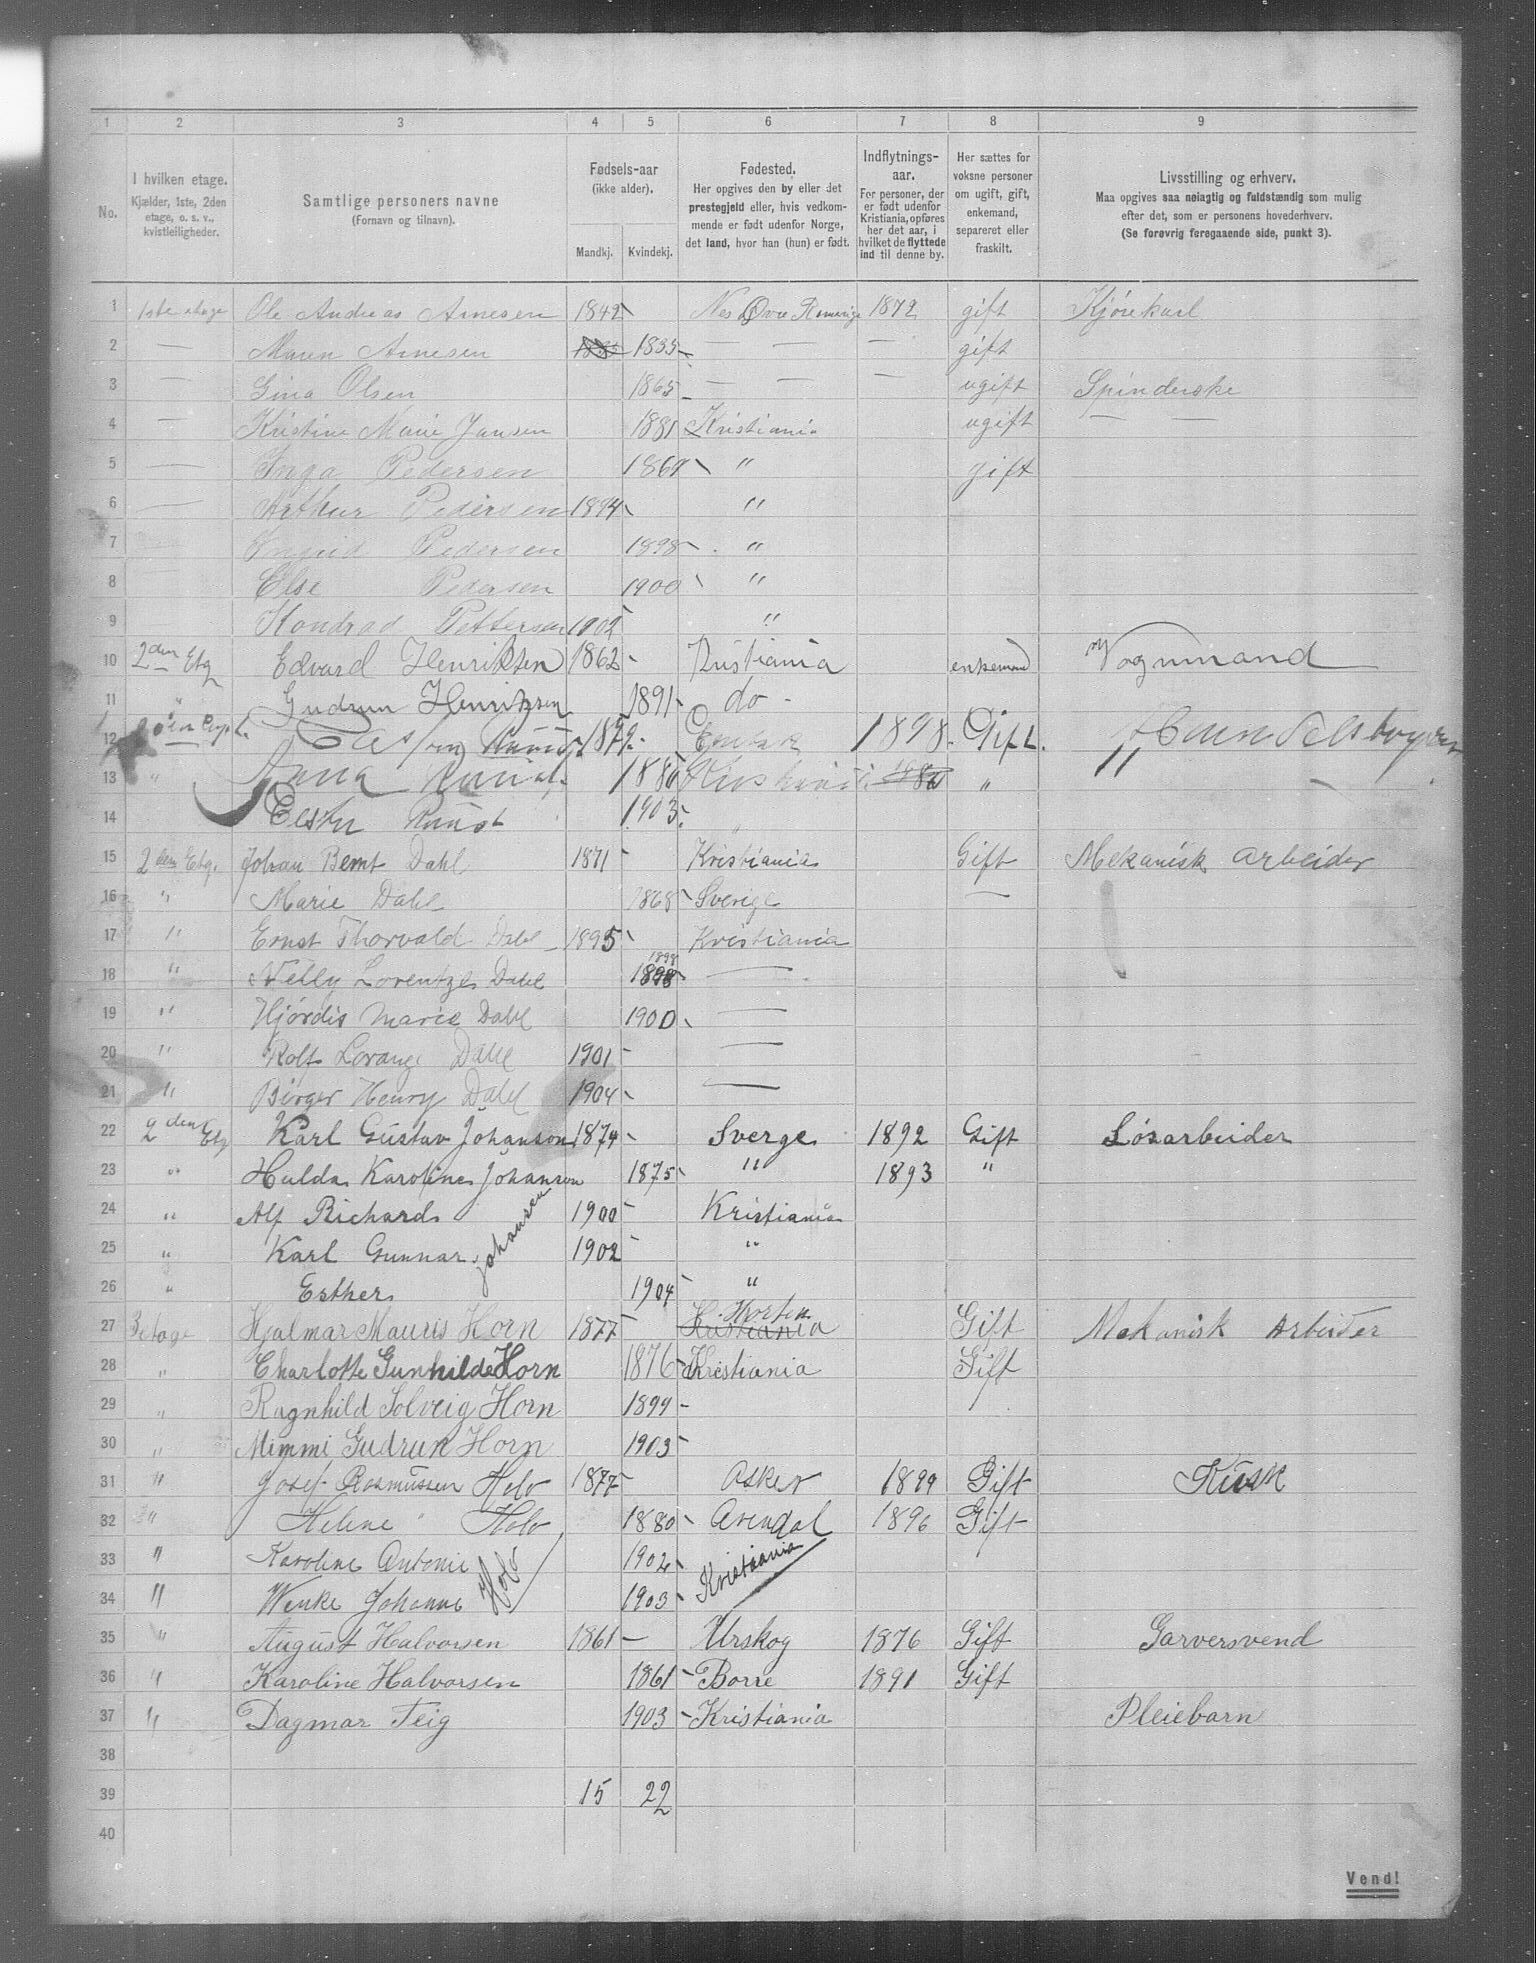 1 2 3 4 5 6 7 8 9
No.
I hvilken etage. Kjælder, 1ste, 2den etage, o. s. v., kvistleiligheder.
Samtlige personers navne (Fornavn og tilnavn).
Fødsels-aar (ikke alder).
Mandkj. Kvindekj.
Fødested. Her opgives den by eller det prestegjeld eller, hvis vedkommende er født udenfor Norge, det land, hvor han (hun) er født.
Indflytnings-aar. For personer, der er født udenfor Kristiania, opføres her det aar, i hvilket de flyttede ind til denne by.
Her sættes for voksne personer om ugift, gift, enkemand, separeret eller fraskilt.
Livsstilling og erhverv. Maa opgives saa nøiagtig og fuldstændig som mulig efter det, som er personens hovederhverv. (Se forøvrig foregaaende side, punkt 3).
1 1ste etage Ole Andreas Arnesen 1842 Nes Øvre Romerige 1872 gift Kjørekarl
2 — Maren Arnesen 1835 — — — gift
3 — Gina Olsen 1865 — — — ugift Spinderske
4 — Kristine Marie Jansen 1881 Kristiania ugift — —
5 — Inga Pedersen 1867 " gift
6 — Arthur Pedersen 1894 "
7 Ingrid Pedersen 1898 "
8 Else Pedersen 1900 "
9 Kondrad Pettersen 1902 "
10 2den Etg Edvard Henriksen 1862 Kristiania enkemand Vognmand
11 " Gudrun Henriksen 1891 do
12 1879 1898 Gift.
13 " Anna 1880 "
14 1903
15 2den Etg. Johan Bernt Dahl 1871 Kristiania Gift Mekanisk arbeider
16 " Marie Dahl 1868 Sverige —
17 " Ernst Thorvald Dahl 1895 Kristiania
18 " Nelly Lorentze Dahl 1898 1898 —
19 " Hjørdis Marie Dahl 1900 —
20 " Rolf Lorang Dahl 1901 —
21 " Birger Henry Dahl 1904 —
22 2den Etg Karl Gustav Johanson 1874 Sverge 1892 Gift Løsarbeider
23 " Hulda Karoline Johanson 1875 " 1893 "
24 " Alf Richard Johansen 1900 Kristiania
25 " Karl Gunnar 1902 "
26 " Esther 1904 "
27 3 etage Hjalmar Mauris Horn 1877 Kristiania Horten Gift Mekanisk Arbeider
28 " Charlotte Gunhilde Horn 1876 Kristiania Gift
29 " Ragnhild Solveig Horn 1899
30 " Mimmi Gudrun Horn 1903
31 " Josef Rasmussen Holo 1877 Asker 1899 Gift Kusk
32 " Helene " Holo 1880 Arendal 1896 Gift
33 " Karoline Antonie Holo 1902 Kristiania
34 " Wenke Johanne 1903
35 " August Halvorsen 1861 Urskog 1876 Gift Garversvend
36 " Karoline Halvorsen 1861 Borre 1891 Gift
37 " Dagmar Teig 1903 Kristiania Pleiebarn
38
39 15 22
40
Vend!